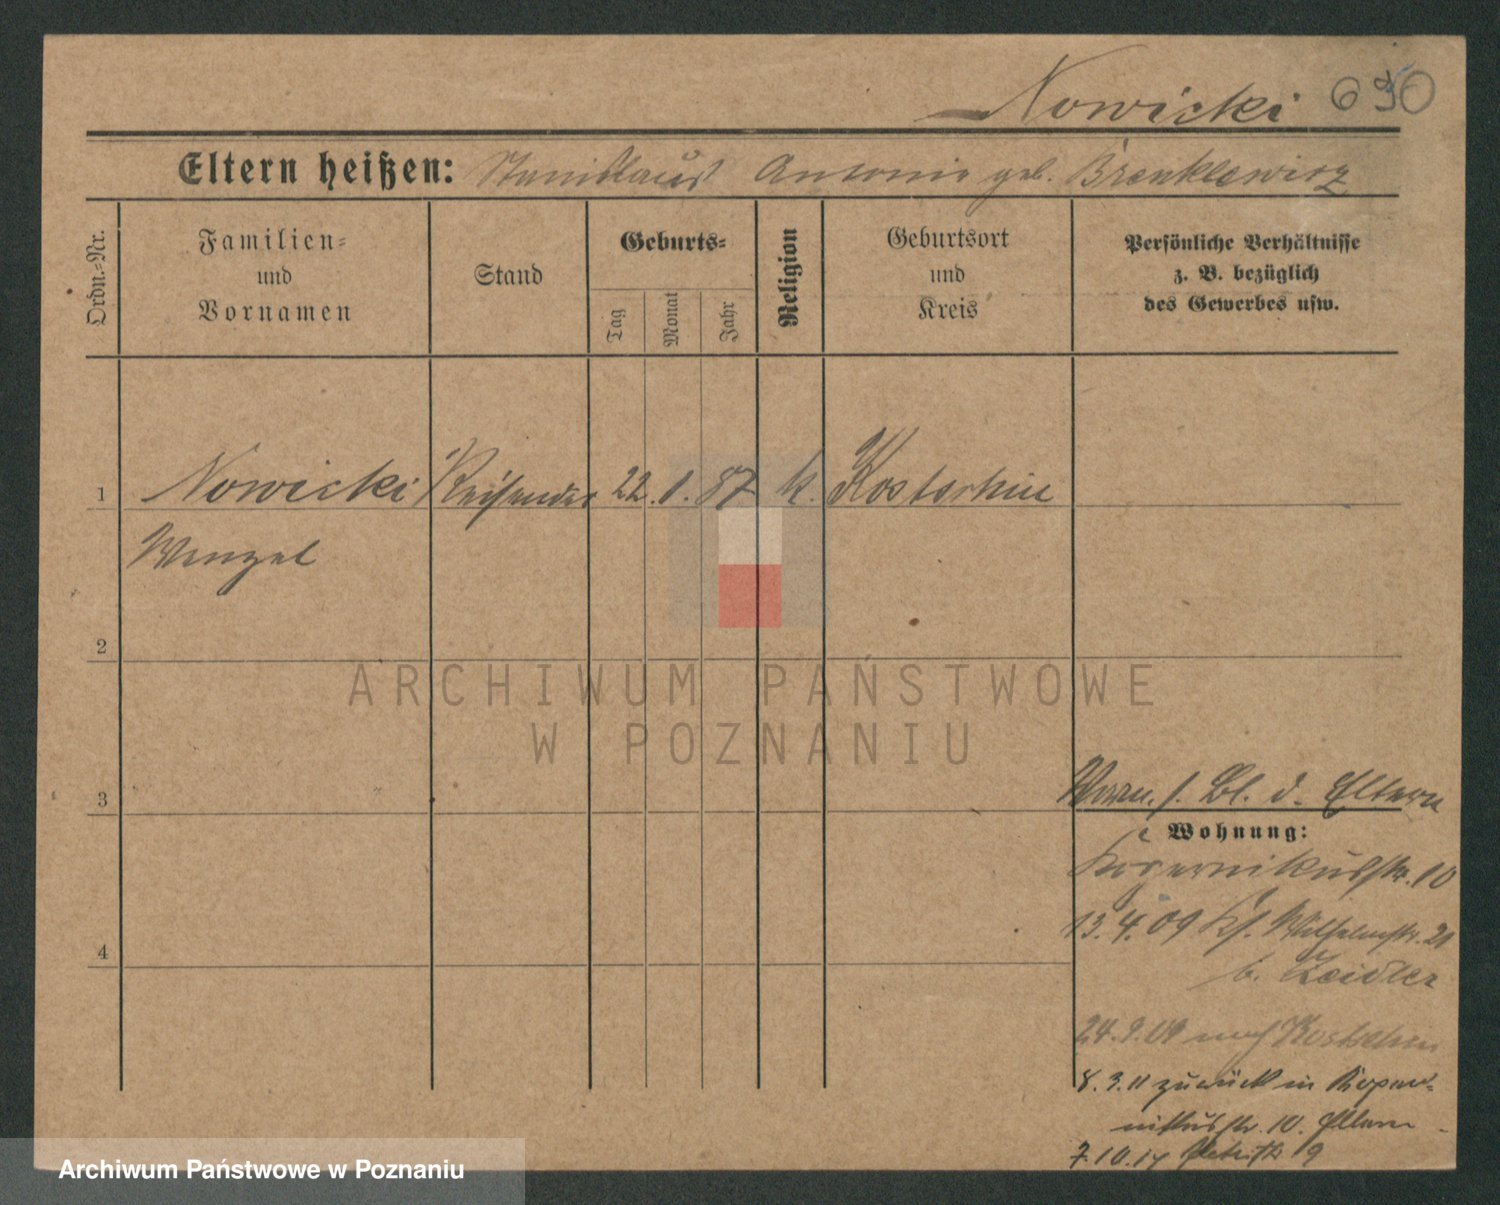 Nowicki 650
Eltern heißen: Stanislaus Antonie geb. Brenklewicz
Ordn.-Nr.
Familien-
und
Vornamen
Stand
Geburts-
Tag
Monat
Jahr
Religion
Geburtsort
und
Kreis
Persönliche Verhältnisse
z. B. bezüglich
des Gewerbes usw.
1 Nowicki Reisender 22. 1. 87 k. Kostschin
Wenzel
2
ARCHIWUM PAŃSTWOWE
W POZNANIU
3
f. Bl. d. Eltern
Wohnung:
Kopernikusstr. 10
13. 4. 09 Wilhelmstr. 21
b. Zeidler
24. 9. 09 nach Kostschin
8. 3. 11 zurück in Koper-
nikusstr. 10. Eltern
4
7. 10. 14 9
Archiwum Państwowe w Poznaniu